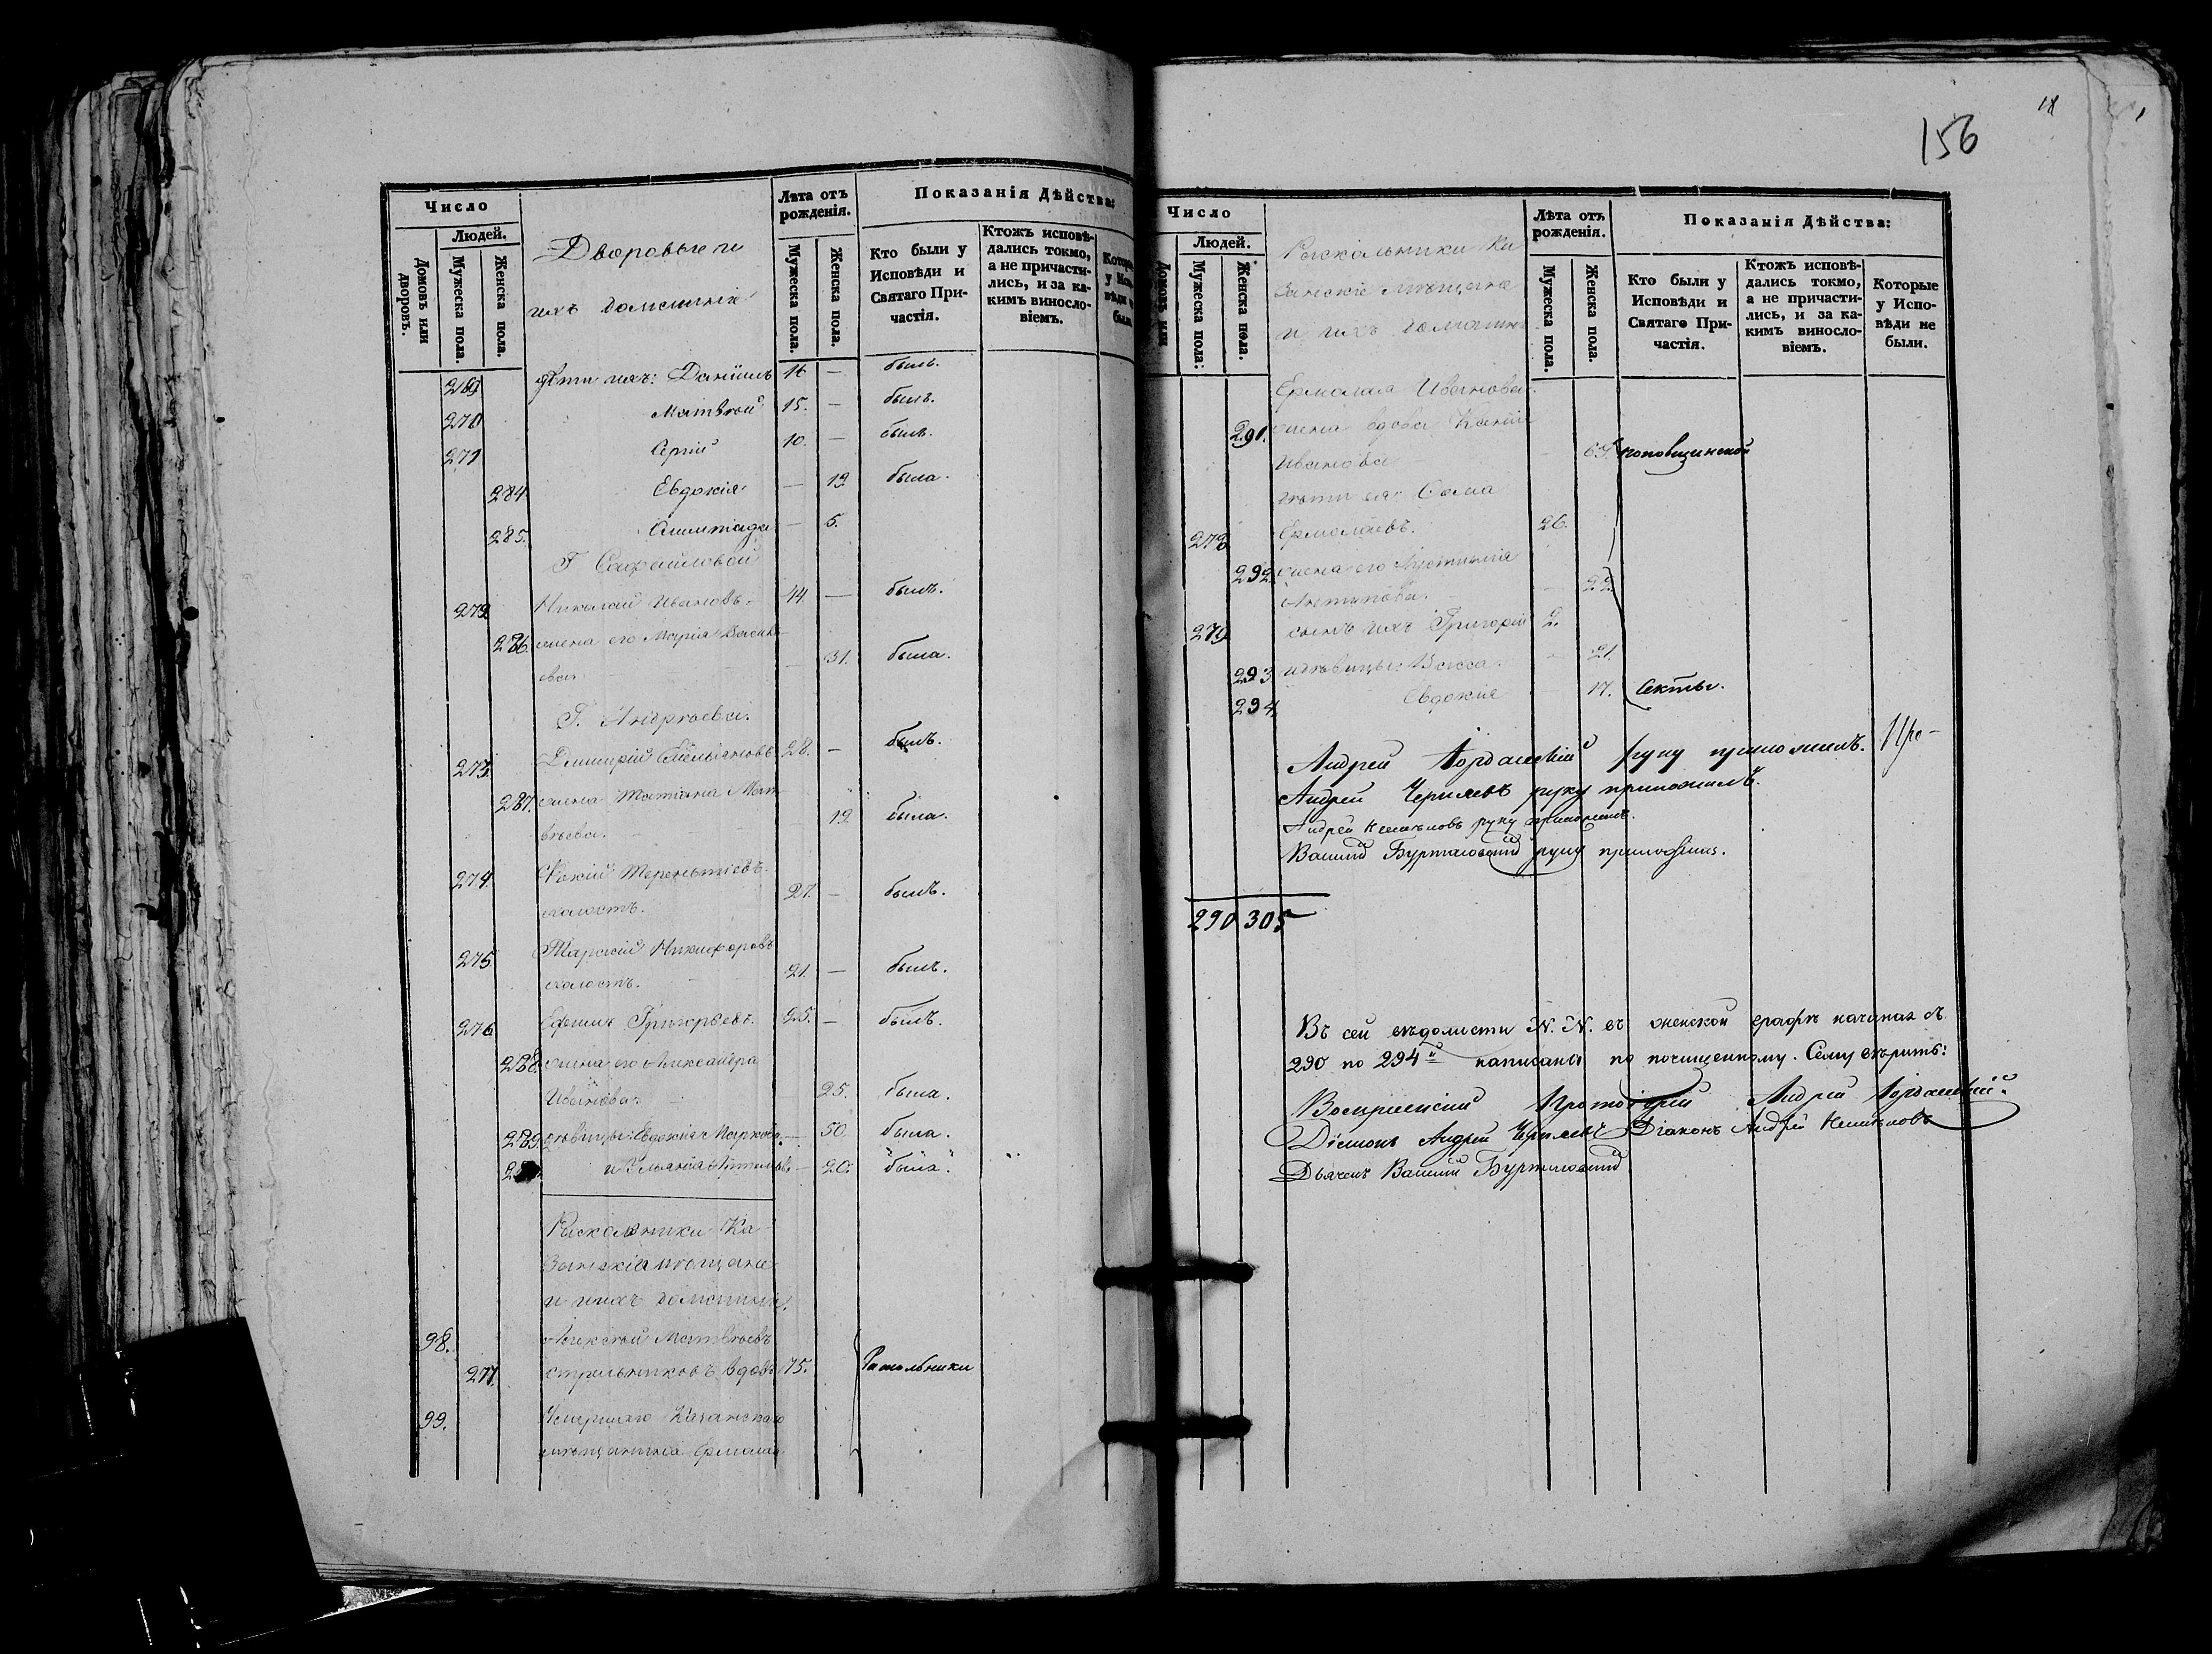 Число
Людей.
Домовъ или дворовъ.
Мужеска пола.
Женска пола.
Дворовые и
ихъ домашніе
Лѣта отъ рожденія.
Мужеска пола.
Женска пола.
Показанія Дѣйства:
Кто были у Исповѣди и Святаго Причастія.
Ктожъ исповѣдались токмо, а не причастились, и за какимъ винословіемъ.
269 дѣти ихъ: Даніилъ 16 — былъ.
270 Матвѣй 15. — былъ.
271 Сергій 10. — былъ.
284 Евдокія — 12 была.
285. — 5.
Г.
272 Николай Ивановъ 44 — былъ.
286. жена его Марія Василь-
ева — 31. была.
Г. Андреева.
273. Димитрій Емельяновъ 28. — былъ.
287. жена Татіана Мат-
вѣева. — 19. была.
274. Терентіевъ
холостъ. 27. — былъ.
275 Тарасій Никифоровъ
холостъ. 21. — былъ.
276 Ефимъ Григорьевъ. 25. — былъ.
288. жена его Александра
Иванова — 25. была.
289. дѣвицы: Евдокія Маркова — 50 была.
и Ульянія — 20. была.
Раскольники Ка-
занскіе мѣщане
и ихъ домашніе.
98. Алексѣй Матвѣевъ
277. Стрельниковъ вдовъ 75. Раскольники
99. Умершаго Казанскаго
мѣщанина Ермолая
156
Число
Людей.
Домовъ или
Мужеска пола:
Женска пола.
Раскольники Ка
занскіе мѣщане
и ихъ домашн
Лѣта отъ рожденія.
Мужеска пола.
Женска пола.
Показанія Дѣйства:
Кто были у Исповѣди и Святаго Причастія.
Ктожъ исповѣдались токмо, а не причастились, и за какимъ винословіемъ.
Которые у Исповѣди не были.
Ермолая Иванова
291. жена вдова
Иванова — поповщинской
дѣти ея:
278 Ермолаевъ. 26.
292. жена его Устинія
Антипова. — 22
279 сынъ ихъ Григорій 2.
293. дѣвицы: Васса. — 21.
294. Евдокія 17. секты.
Андрей Іорданскій руку приложилъ.
Андрей Черняевъ руку приложилъ.
Андрей руку приложилъ.
Василій руку приложилъ.
290 305
Въ сей вѣдомости N. N. въ женской графѣ начиная съ
290 по 294й написаны по почищенному. Сему вѣрить:
Воскресенскій Протоіерей Андрей Іорданскій.
Діаконъ Андрей Черняевъ Діаконъ Андрей
Дьячекъ Василій